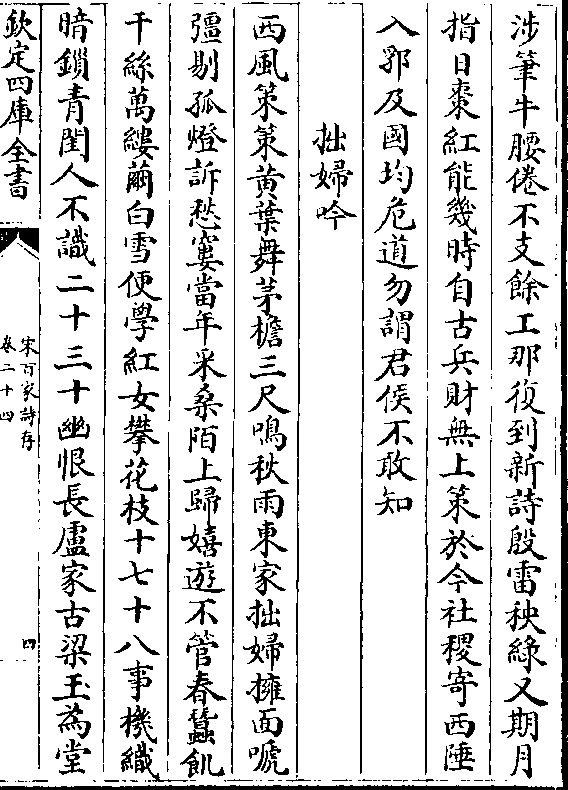 涉筆牛腰倦不支餘工那復到新詩殷雷秧綠又期月
指日棗紅能幾時自古兵財無上策於今社稷寄西陲
入郛及國均危道勿謂君侯不敢知
拙婦吟
西風策策黄葉舞茅檐三尺鳴秋雨東家拙婦擁面嗁
彊剔孤燈訴愁窶當年采桑陌上歸嬉遊不管春蠶飢
千絲萬縷繭白雪便學紅女攀花枝十七十八事機織
暗鎖青閨人不識二十三十幽恨長盧家古梁玉為堂
欽定四庫全書
宋百家詩存
卷二十四
四